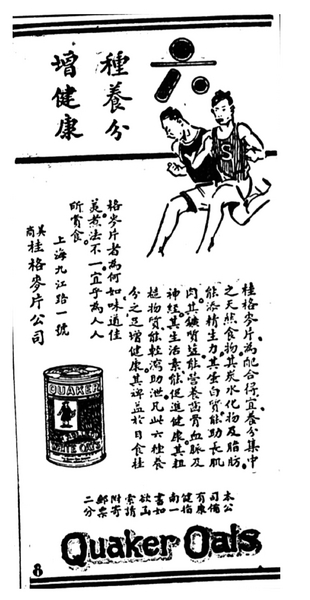 六
種養分
增健康
桂格麥片。為配合得宜養分集中
之天然食物其炭水化物及脂肪
能添精生力。其蛋白質能助長肌
肉。其鑛質鹽能營養齒骨血脈及
神經。其生活素能促進健康。其粗
植物質能輕瀉助泄。凡此六種養
分之足增健康其裨益於日食桂
格麥片者為何如味道佳
美。煮法不一。宜乎為人人
所賞食。
上海九江路一號
美商桂格麥片公司
QUAKER
WHITE OATS
本公
司備
有康
健指
南一
書如
欲函
索請
附寄
郵票
二分
Quaker Oats
8